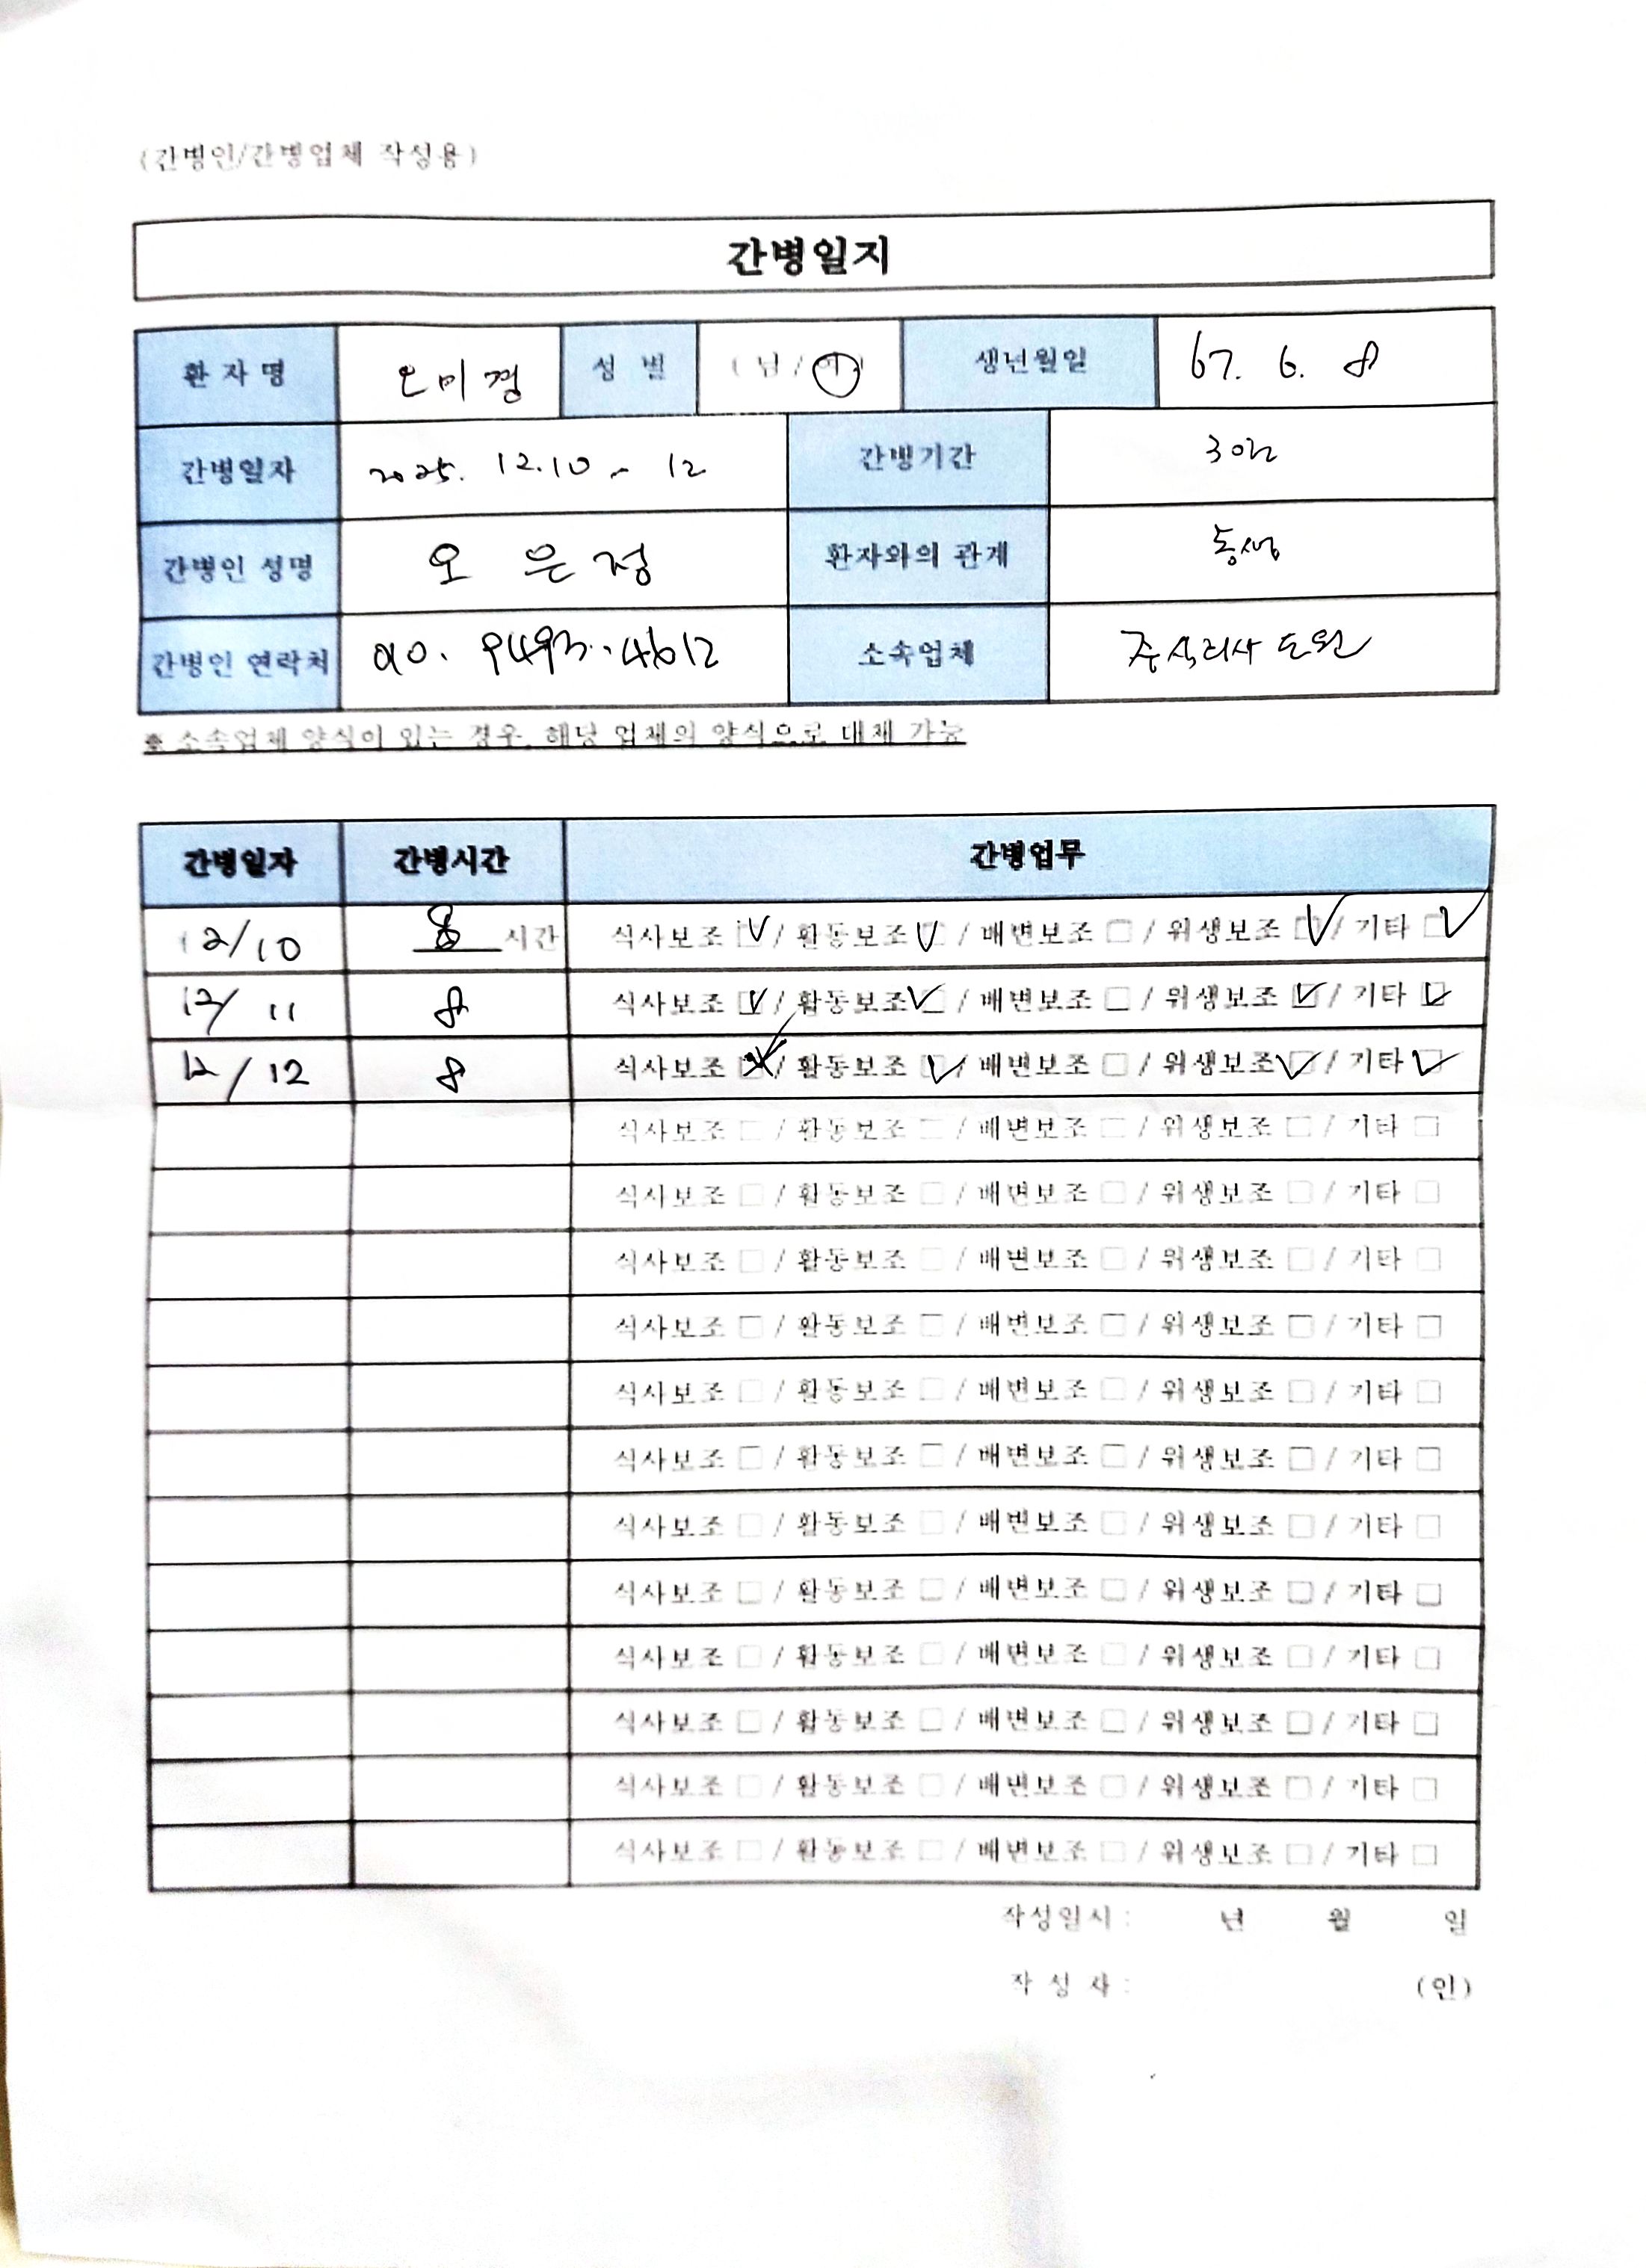 (간병인/간병업체 작성용)
간병일지
환자명 오미경 성별 (남/여) 생년월일 67. 6. 8
간병일자 2025. 12.10 ~ 12 간병기간 3일
간병인 성명 오은정 환자와의 관계 동생
간병인 연락처 010. 9493.4612 소속업체 주식회사 도원
※ 소속업체 양식이 있는 경우, 해당 업체의 양식으로 대체 가능
간병일자 간병시간 간병업무
12/10 8 시간 식사보조 ☑ / 활동보조 ☑ / 배변보조 □ / 위생보조 ☑ / 기타 ☑
12/11 8 식사보조 ☑ / 활동보조 ☑ / 배변보조 □ / 위생보조 ☑ / 기타 ☑
12/12 8 식사보조 ☑ / 활동보조 ☑ / 배변보조 □ / 위생보조 ☑ / 기타 ☑
식사보조 □ / 활동보조 □ / 배변보조 □ / 위생보조 □ / 기타 □
식사보조 □ / 활동보조 □ / 배변보조 □ / 위생보조 □ / 기타 □
식사보조 □ / 활동보조 □ / 배변보조 □ / 위생보조 □ / 기타 □
식사보조 □ / 활동보조 □ / 배변보조 □ / 위생보조 □ / 기타 □
식사보조 □ / 활동보조 □ / 배변보조 □ / 위생보조 □ / 기타 □
식사보조 □ / 활동보조 □ / 배변보조 □ / 위생보조 □ / 기타 □
식사보조 □ / 활동보조 □ / 배변보조 □ / 위생보조 □ / 기타 □
식사보조 □ / 활동보조 □ / 배변보조 □ / 위생보조 □ / 기타 □
식사보조 □ / 활동보조 □ / 배변보조 □ / 위생보조 □ / 기타 □
식사보조 □ / 활동보조 □ / 배변보조 □ / 위생보조 □ / 기타 □
식사보조 □ / 활동보조 □ / 배변보조 □ / 위생보조 □ / 기타 □
식사보조 □ / 활동보조 □ / 배변보조 □ / 위생보조 □ / 기타 □
작성일시 : 년 월 일
작 성 자 : (인)